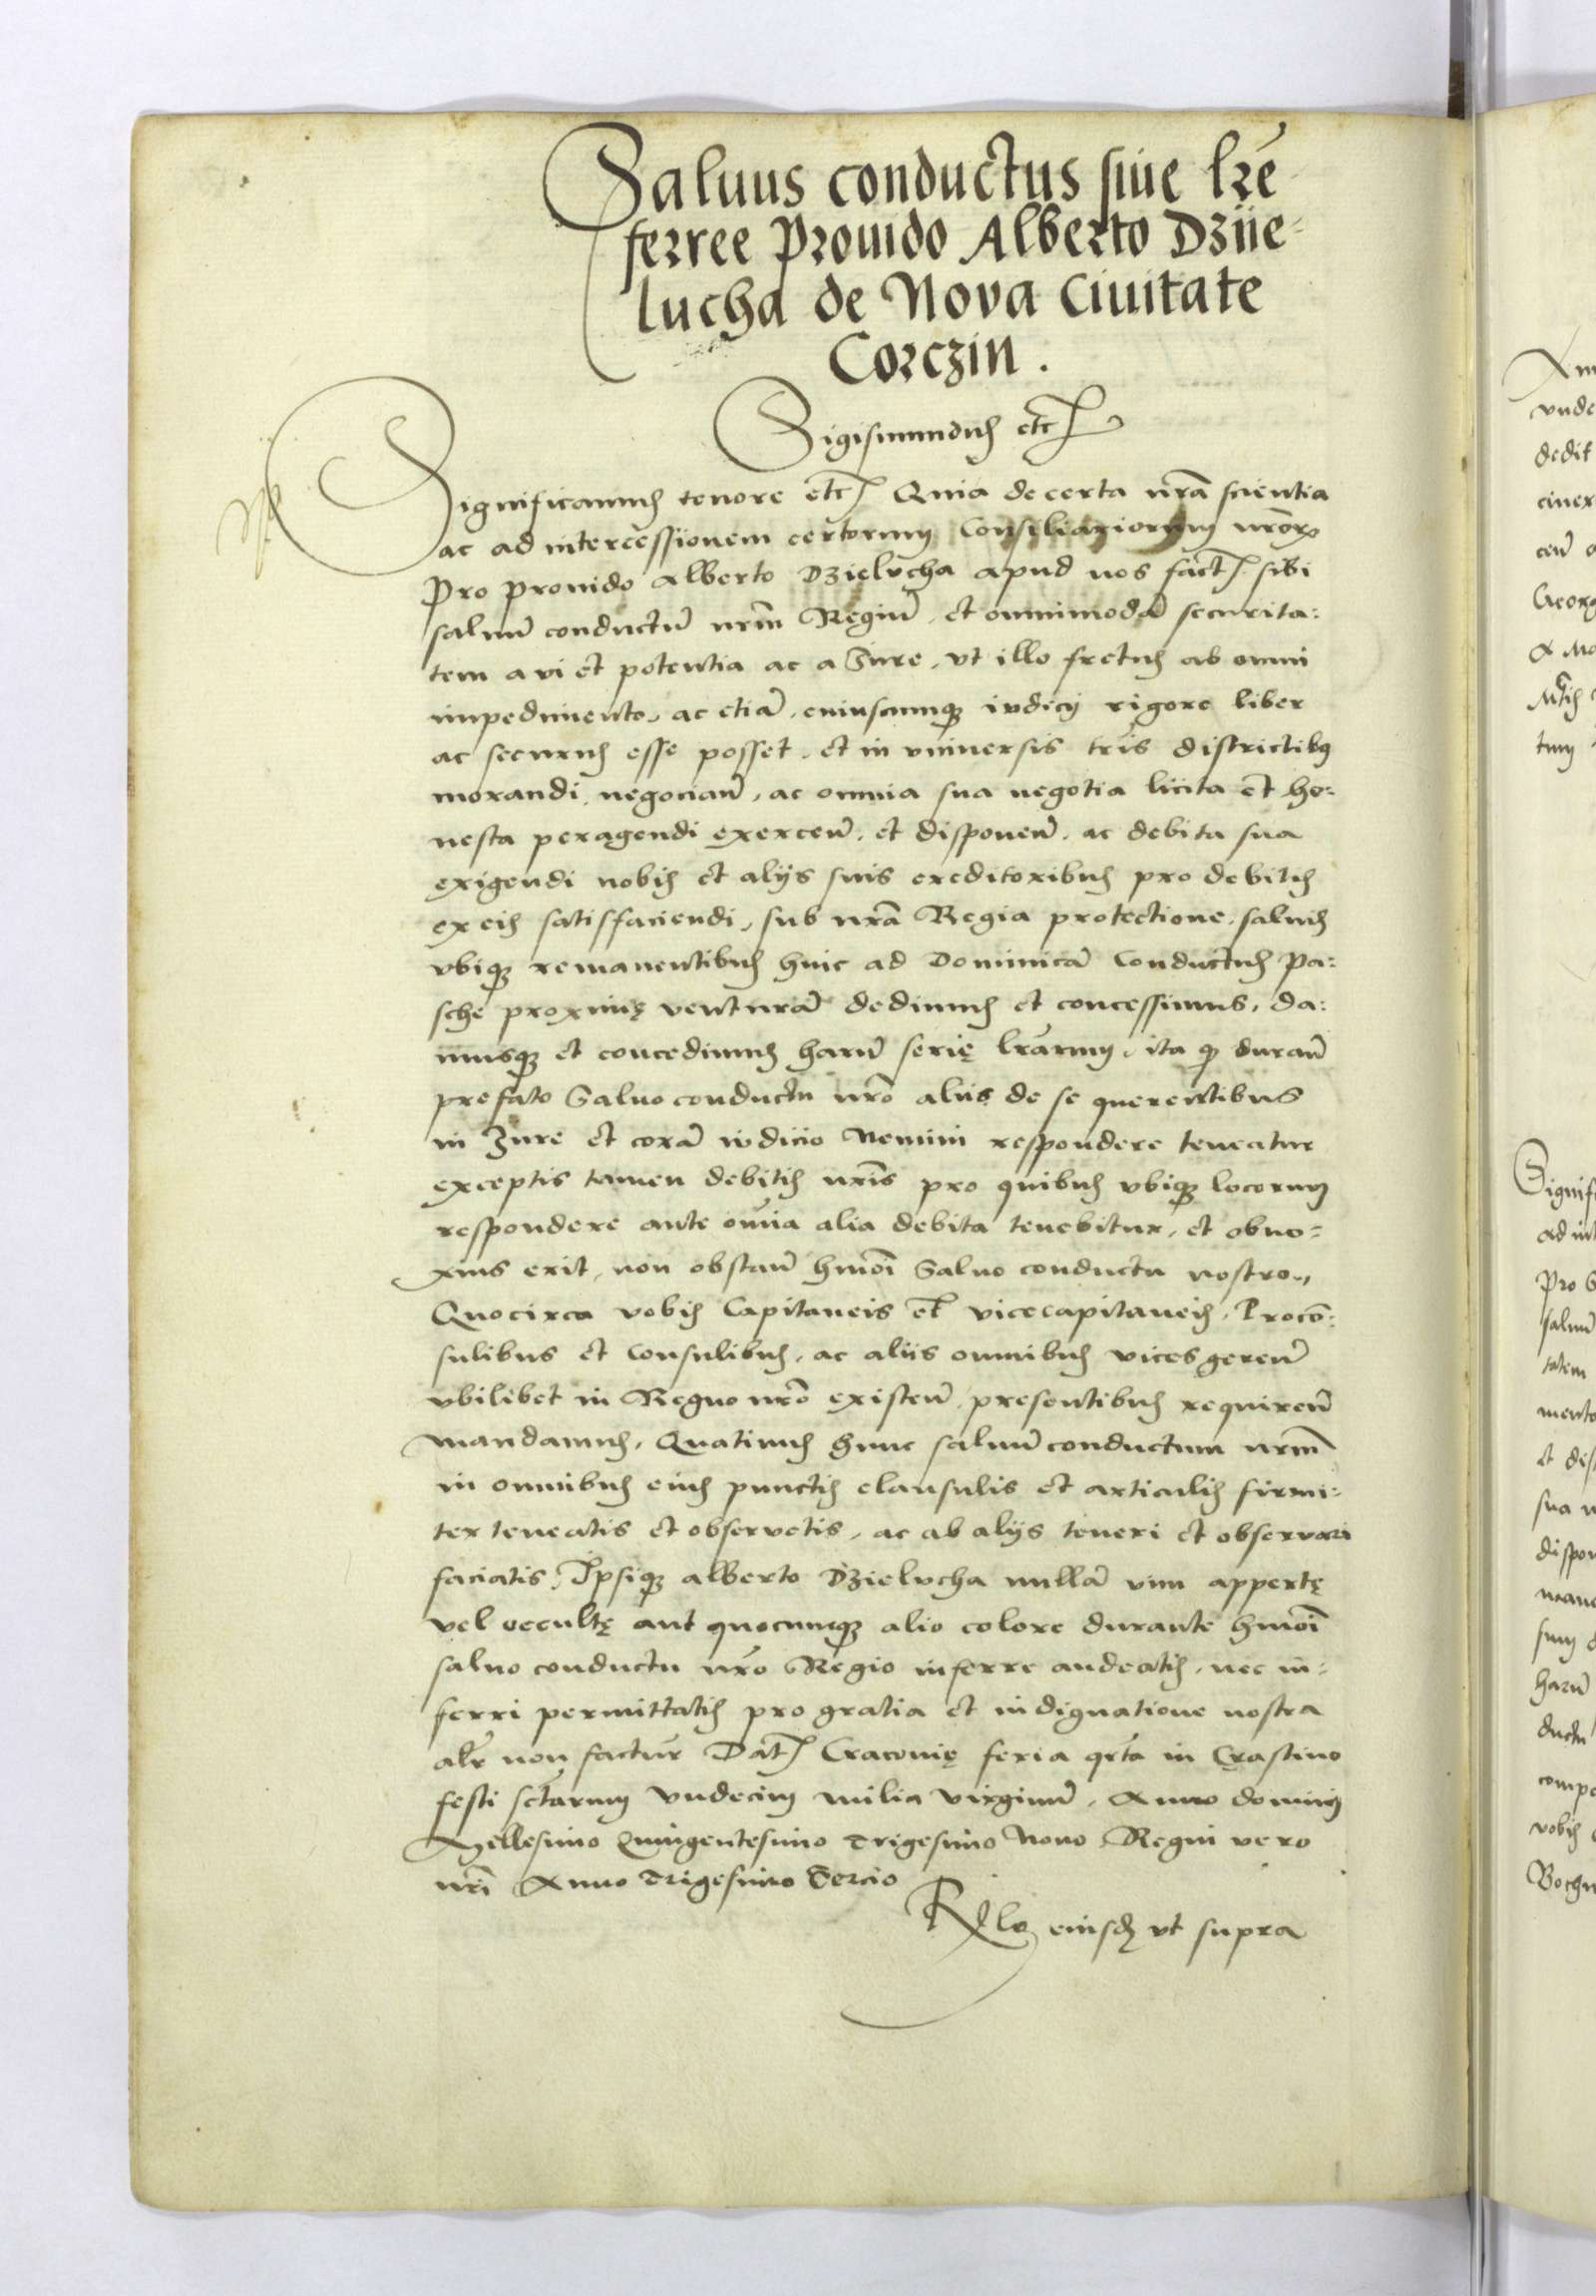 Saluus conductus siue lr̃e
ferree Prouido Alberto Dzije-
lucha de Nova Ciuitate
Corczin.
Sigismundus etc
Significamus tenore etc Quia de certa nr̃a scientia
ac ad intercessionem certorum Consiliariorum nr̃orum
Pro prouido Alberto Dzielucha apud nos fact̃ sibi
saluũ conductũ nr̃m Regiũ, et omnimodã securita:
tem a vi et potentia ac a Iure, vt illo fretus ab omni
impedimento, ac etiã, cuiuscumq iudicij rigore liber
ac securus esse posset, et in vniuersis tr̃is districtibus
morandi, negociañ, ac omnia sua negotia licita et ho:
nesta peragendi exerceñ, et disponeñ, ac debita sua
exigendi nobis et alijs suis creditoribus pro debitis
ex eis satisfaciendi, sub nr̃a Regia protectione, saluis
vbiq remanentibus hinc ad Dominicã Conductus Pa:
sche proximę venturã dedimus et concessimus, da:
musq et concedimus harũ serię lr̃arum, ita q durañ
prefato Saluo conductu nr̃o aliis de se querentibus
in Iure et corã iudicio Nemini respondere teneatur
exceptis tamen debitis nr̃is pro quibus vbiq locorum
respondere ante om̃ia alia debita tenebitur, et obno=
xius erit, non obstañ hmõi Saluo conductu nostro,
Quocirca vobis Capitaneis et vicecapitaneis, Procõ:
sulibus et Consulibus, ac aliis omnibus vices gereñ
vbilibet in Regno nr̃o existeñ, presentibus requireñ
mandamus, Quatinus hunc saluũ conductum nr̃m
in omnibus eius punctis clausulis et articulis firmi:
ter teneatis et obseruetis, ac ab alijs teneri et obseruari
faciatis, Ipsiq Alberto Dzielucha nullã vim appertę
vel occultę aut quocumq alio colore durante hmõi
saluo conductu nr̃o Regio inferre audeatis, nec in:
ferri permittatis pro gratia et indignatione nostra
alr̃ non factur̃ Dat̃ Cracovię feria qr̃ta in Crastino
festi sctarum vndecim milia virginũ, Anno domini
Millesimo Quingentesimo Trigesimo Nono Regni vero
nr̃i Anno Trigesimo Tercio
Rélo eiusdem vt supra